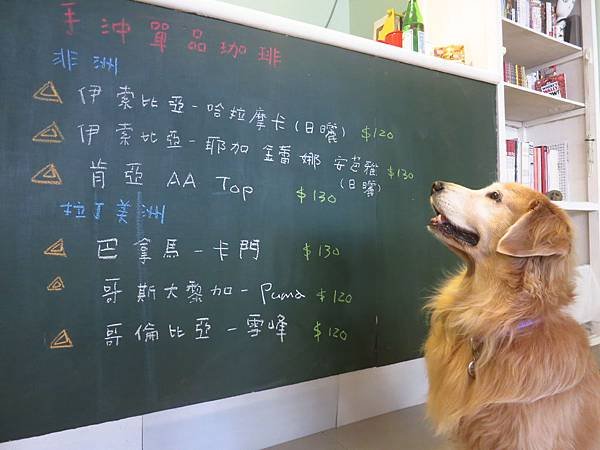 手沖單品咖啡
非洲
伊索比亞-哈拉摩卡(日曬) $120
伊索比亞-耶加 金蕾娜 安芭雅(日曬) $130
肯亞 AA Top $130
拉丁美洲
巴拿馬-卡門 $130
哥斯大黎加-Puma $120
哥倫比亞-雪峰 $120